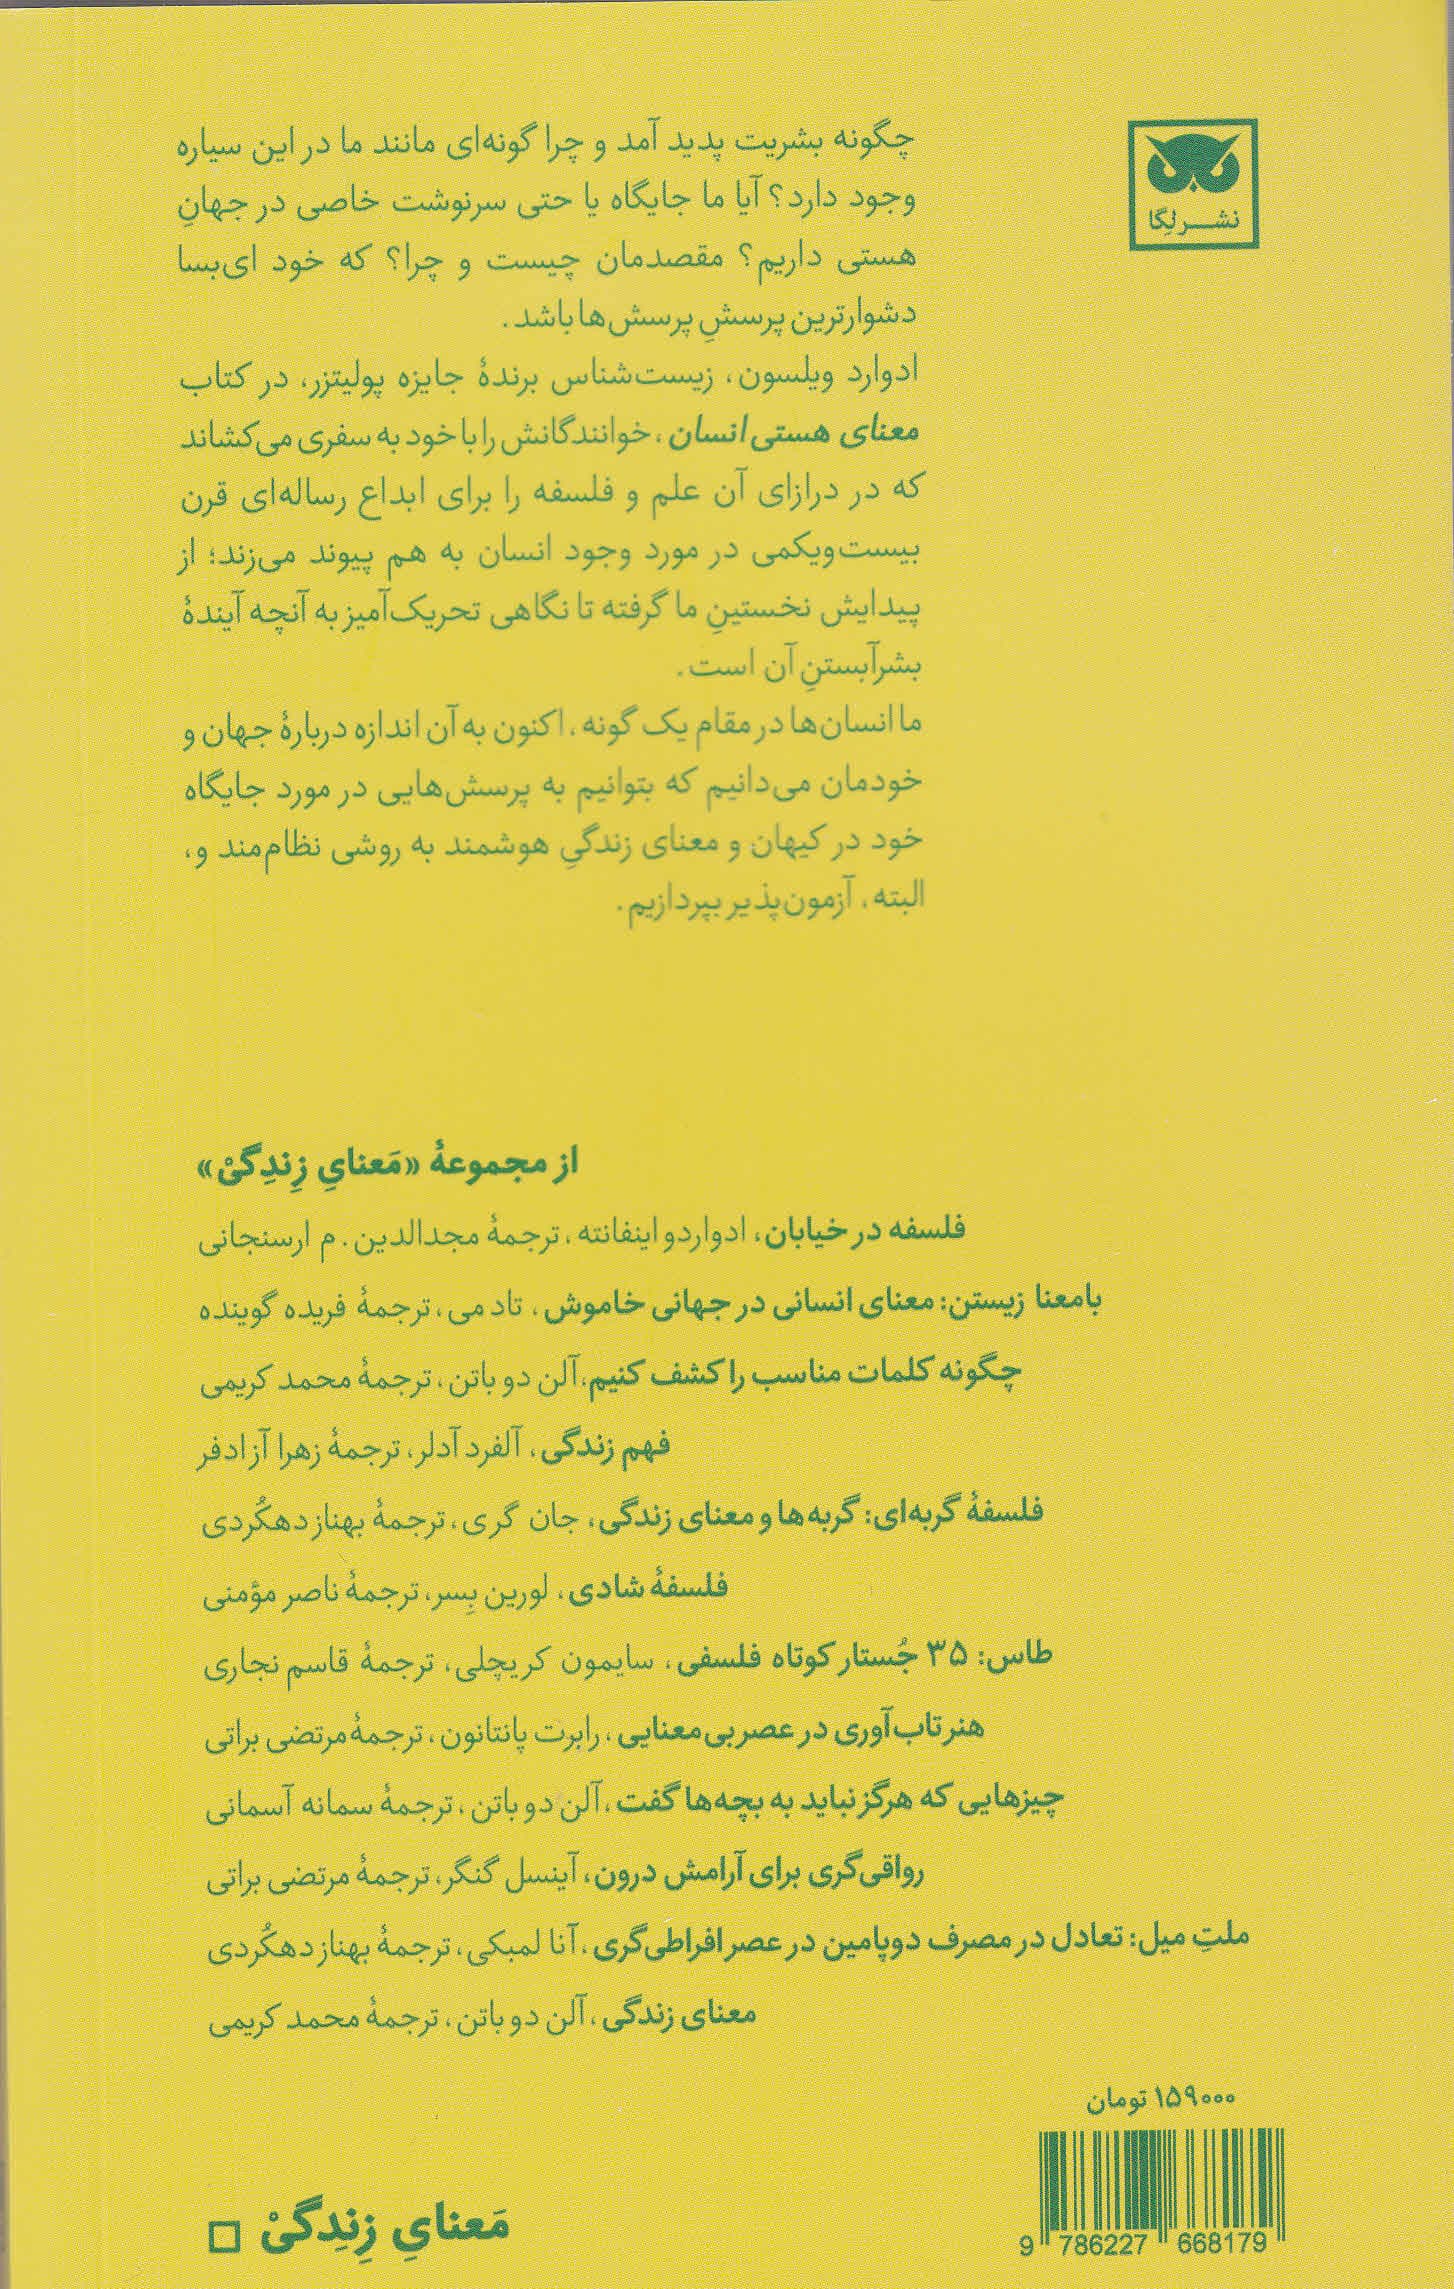 نشر لگا
چگونه بشریت پدید آمد و چرا گونه‌ای مانند ما در این سیاره
وجود دارد؟ آیا ما جایگاه یا حتی سرنوشت خاصی در جهانِ
هستی داریم؟ مقصدمان چیست و چرا؟ که خود ای‌بسا
دشوارترین پرسشِ پرسش‌ها باشد.
ادوارد ویلسون، زیست‌شناس برندهٔ جایزه پولیتزر، در کتاب
معنای هستی انسان، خوانندگانش را با خود به سفری می‌کشاند
که در درازای آن علم و فلسفه را برای ابداع رساله‌ای قرن
بیست‌ویکمی در مورد وجود انسان به هم پیوند می‌زند؛ از
پیدایش نخستینِ ما گرفته تا نگاهی تحریک‌آمیز به آنچه آیندهٔ
بشر آبستنِ آن است.
ما انسان‌ها در مقام یک گونه، اکنون به آن اندازه دربارهٔ جهان و
خودمان می‌دانیم که بتوانیم به پرسش‌هایی در مورد جایگاه
خود در کیهان و معنای زندگیِ هوشمند به روشی نظام‌مند و،
البته، آزمون‌پذیر بپردازیم.
از مجموعهٔ «مَعنایِ زِندِگیْ»
فلسفه در خیابان، ادواردو اینفانته، ترجمهٔ مجدالدین. م ارسنجانی
بامعنا زیستن: معنای انسانی در جهانی خاموش، تاد می، ترجمهٔ فریده گوینده
چگونه کلمات مناسب را کشف کنیم، آلن دو باتن، ترجمهٔ محمد کریمی
فهم زندگی، آلفرد آدلر، ترجمهٔ زهرا آزادفر
فلسفهٔ گربه‌ای: گربه‌ها و معنای زندگی، جان گری، ترجمهٔ بهناز دهکُردی
فلسفهٔ شادی، لورین بِسر، ترجمهٔ ناصر مؤمنی
طاس: ۳۵ جُستار کوتاه فلسفی، سایمون کریچلی، ترجمهٔ قاسم نجاری
هنر تاب‌آوری در عصر بی‌معنایی، رابرت پانتانون، ترجمهٔ مرتضی براتی
چیزهایی که هرگز نباید به بچه‌ها گفت، آلن دو باتن، ترجمهٔ سمانه آسمانی
رواقی‌گری برای آرامش درون، آینسل گنگر، ترجمهٔ مرتضی براتی
ملتِ میل: تعادل در مصرف دوپامین در عصر افراطی‌گری، آنا لمبکی، ترجمهٔ بهناز دهکُردی
معنای زندگی، آلن دو باتن، ترجمهٔ محمد کریمی
۱۵۹۰۰۰ تومان
9 786227 668179
مَعنایِ زِندِگیْ